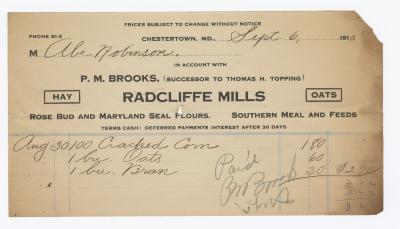 PRICES SUBJECT TO CHANGE WITHOUT NOTICE
PHONE 81-2
CHESTERTOWN, MD., Sept 6, 191
M Abe Robinson.
IN ACCOUNT WITH
P. M. BROOKS, (SUCCESSOR TO THOMAS H. TOPPING)
HAY RADCLIFFE MILLS OATS
ROSE BUD AND MARYLAND SEAL FLOURS. SOUTHERN MEAL AND FEEDS
TERMS CASH: DEFERRED PAYMENTS INTEREST AFTER 30 DAYS
Aug 30 100 Cracked Corn 180
1 bu. Oats 60
1 bu. Bran 30
Pai'd
PM Brooks